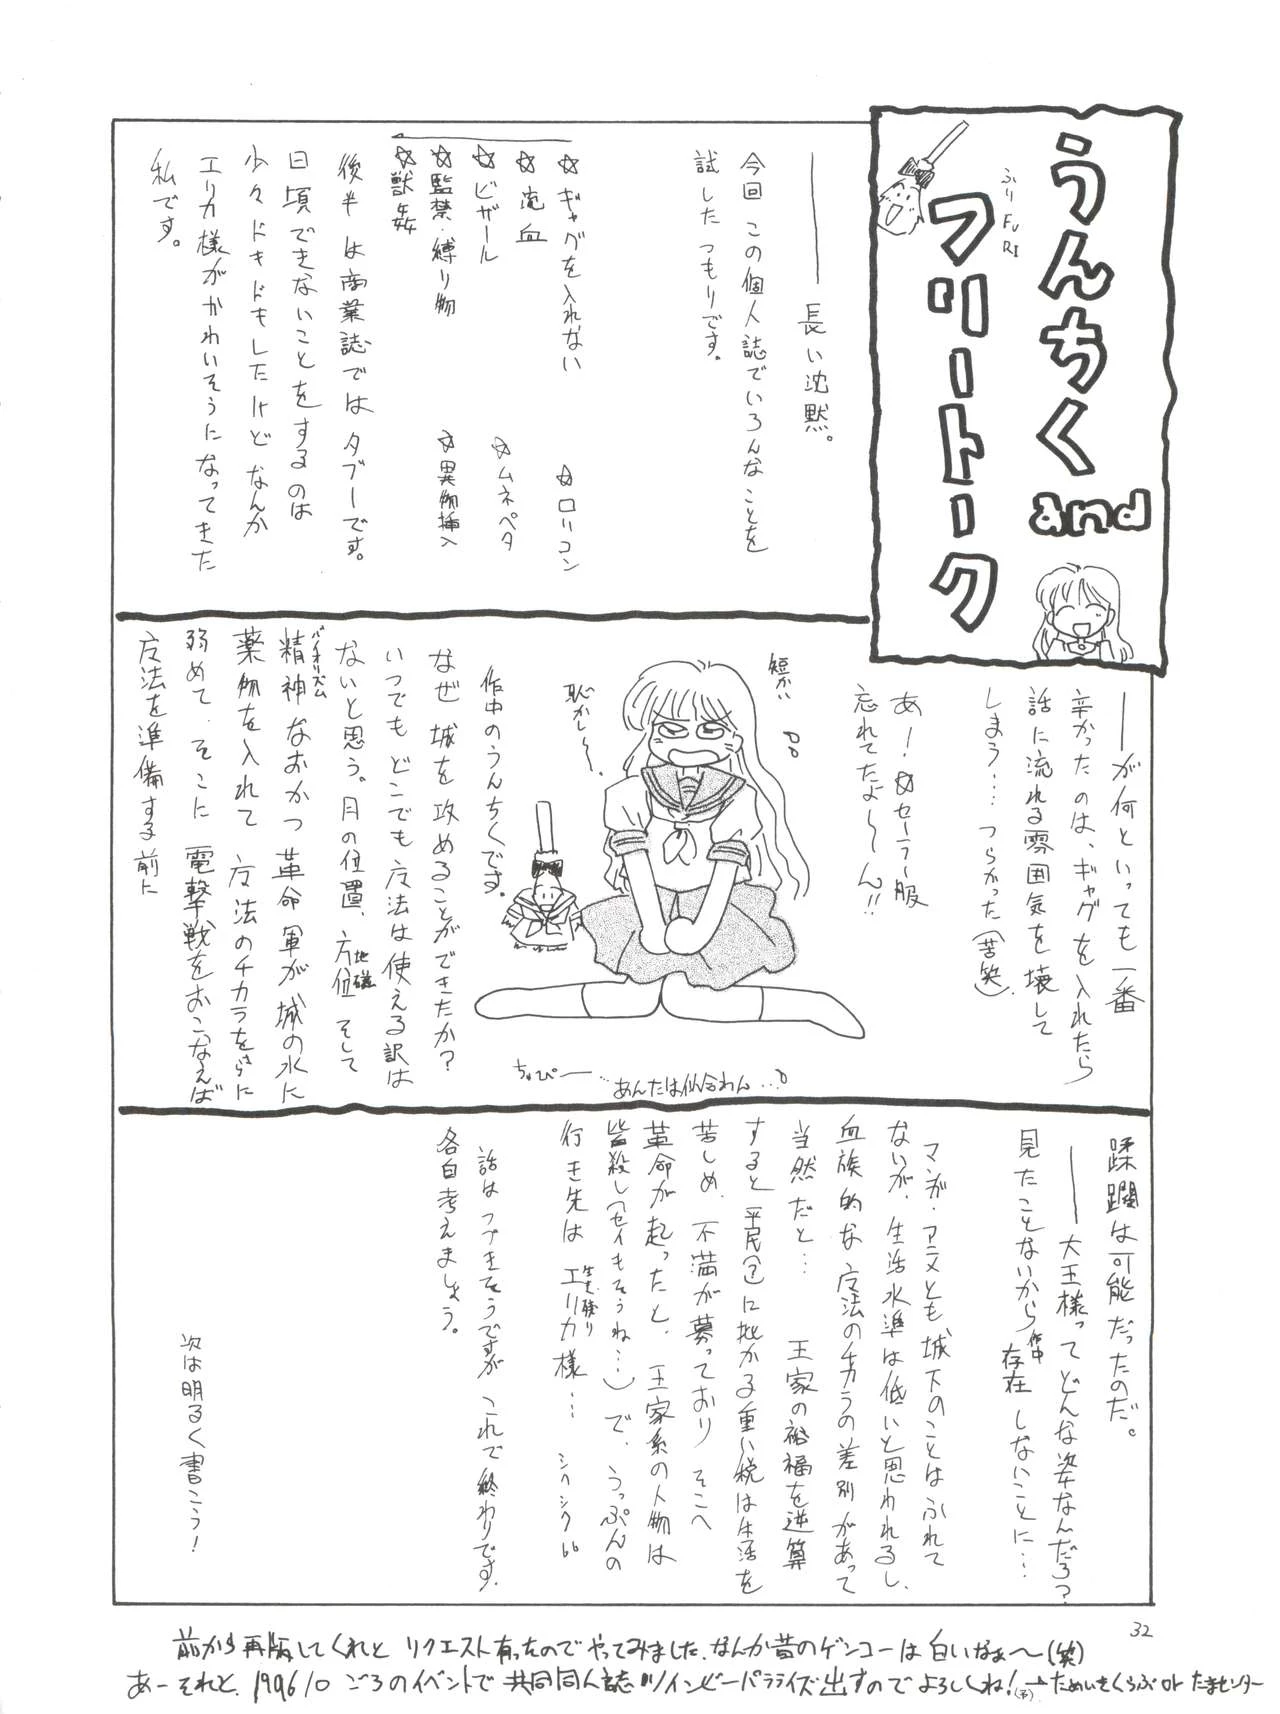 うんちく
and
フリートーク
ふりFuRI
――― 長い沈黙。
今回 この個人誌でいろんなことを
試した つもりです。
☆ギャグを入れない
☆ロリコン
☆流血
☆ムネペタ
☆ビザール
☆異物挿入
☆監禁・縛り物
☆獣姦
後半 は商業誌では タブーです。
日頃できないことをするのは
少々ドキドキしたけど なんか
エリカ様がかわいそうになってきた
私です。
――が何といっても一番
辛かったのは、ギャグを入れたら
話に流れる雰囲気を壊して
しまう… つらかった(苦笑)。
あ!☆セーラー服
忘れてたよ〜ん!!
短かい
恥かし〜。
ちゃぴー…あんたは似合わん…
作中のうんちくです。
なぜ 城を攻めることができたか?
いつでも どこでも 方法は使える訳は
ないと思う。月の位置、方位 地磁 そして
精神 バイオリズム なおかつ 革命軍が城の水に
薬物を入れて 方法のチカラをさらに
弱めて、そこに 電撃戦をおこなえば
方法を準備する前に
蹂躙は可能だったのだ。
――大王様ってどんな姿なんだろ?
見たことないから 作中 存在しないことに…
マンガ・アニメとも城下のことはふれて
ないが、生活水準は低いと思われるし、
血族的な方法のチカラの差別があって
当然だと… 王家の裕福を逆算
すると 平民(?)に批かる重い税は生活を
苦しめ、不満が募っており そこへ
革命が起ったと、王家系の人物は
皆殺し(セイもそうね…)で、うっぷんの
行き先は 生き残り エリカ様… シクシク
話はつづきそうですが これで終わりです。
各自考えましょう。
次は明るく書こう!
32
前から再版してくれと リクエスト有ったのでやってみました、なんか昔のゲンコーは白いなぁ〜(笑)
あーそれと、1996/10ごろのイベントで共同同人誌ツインビーパラダイズ出すのでよろしくね!(予)